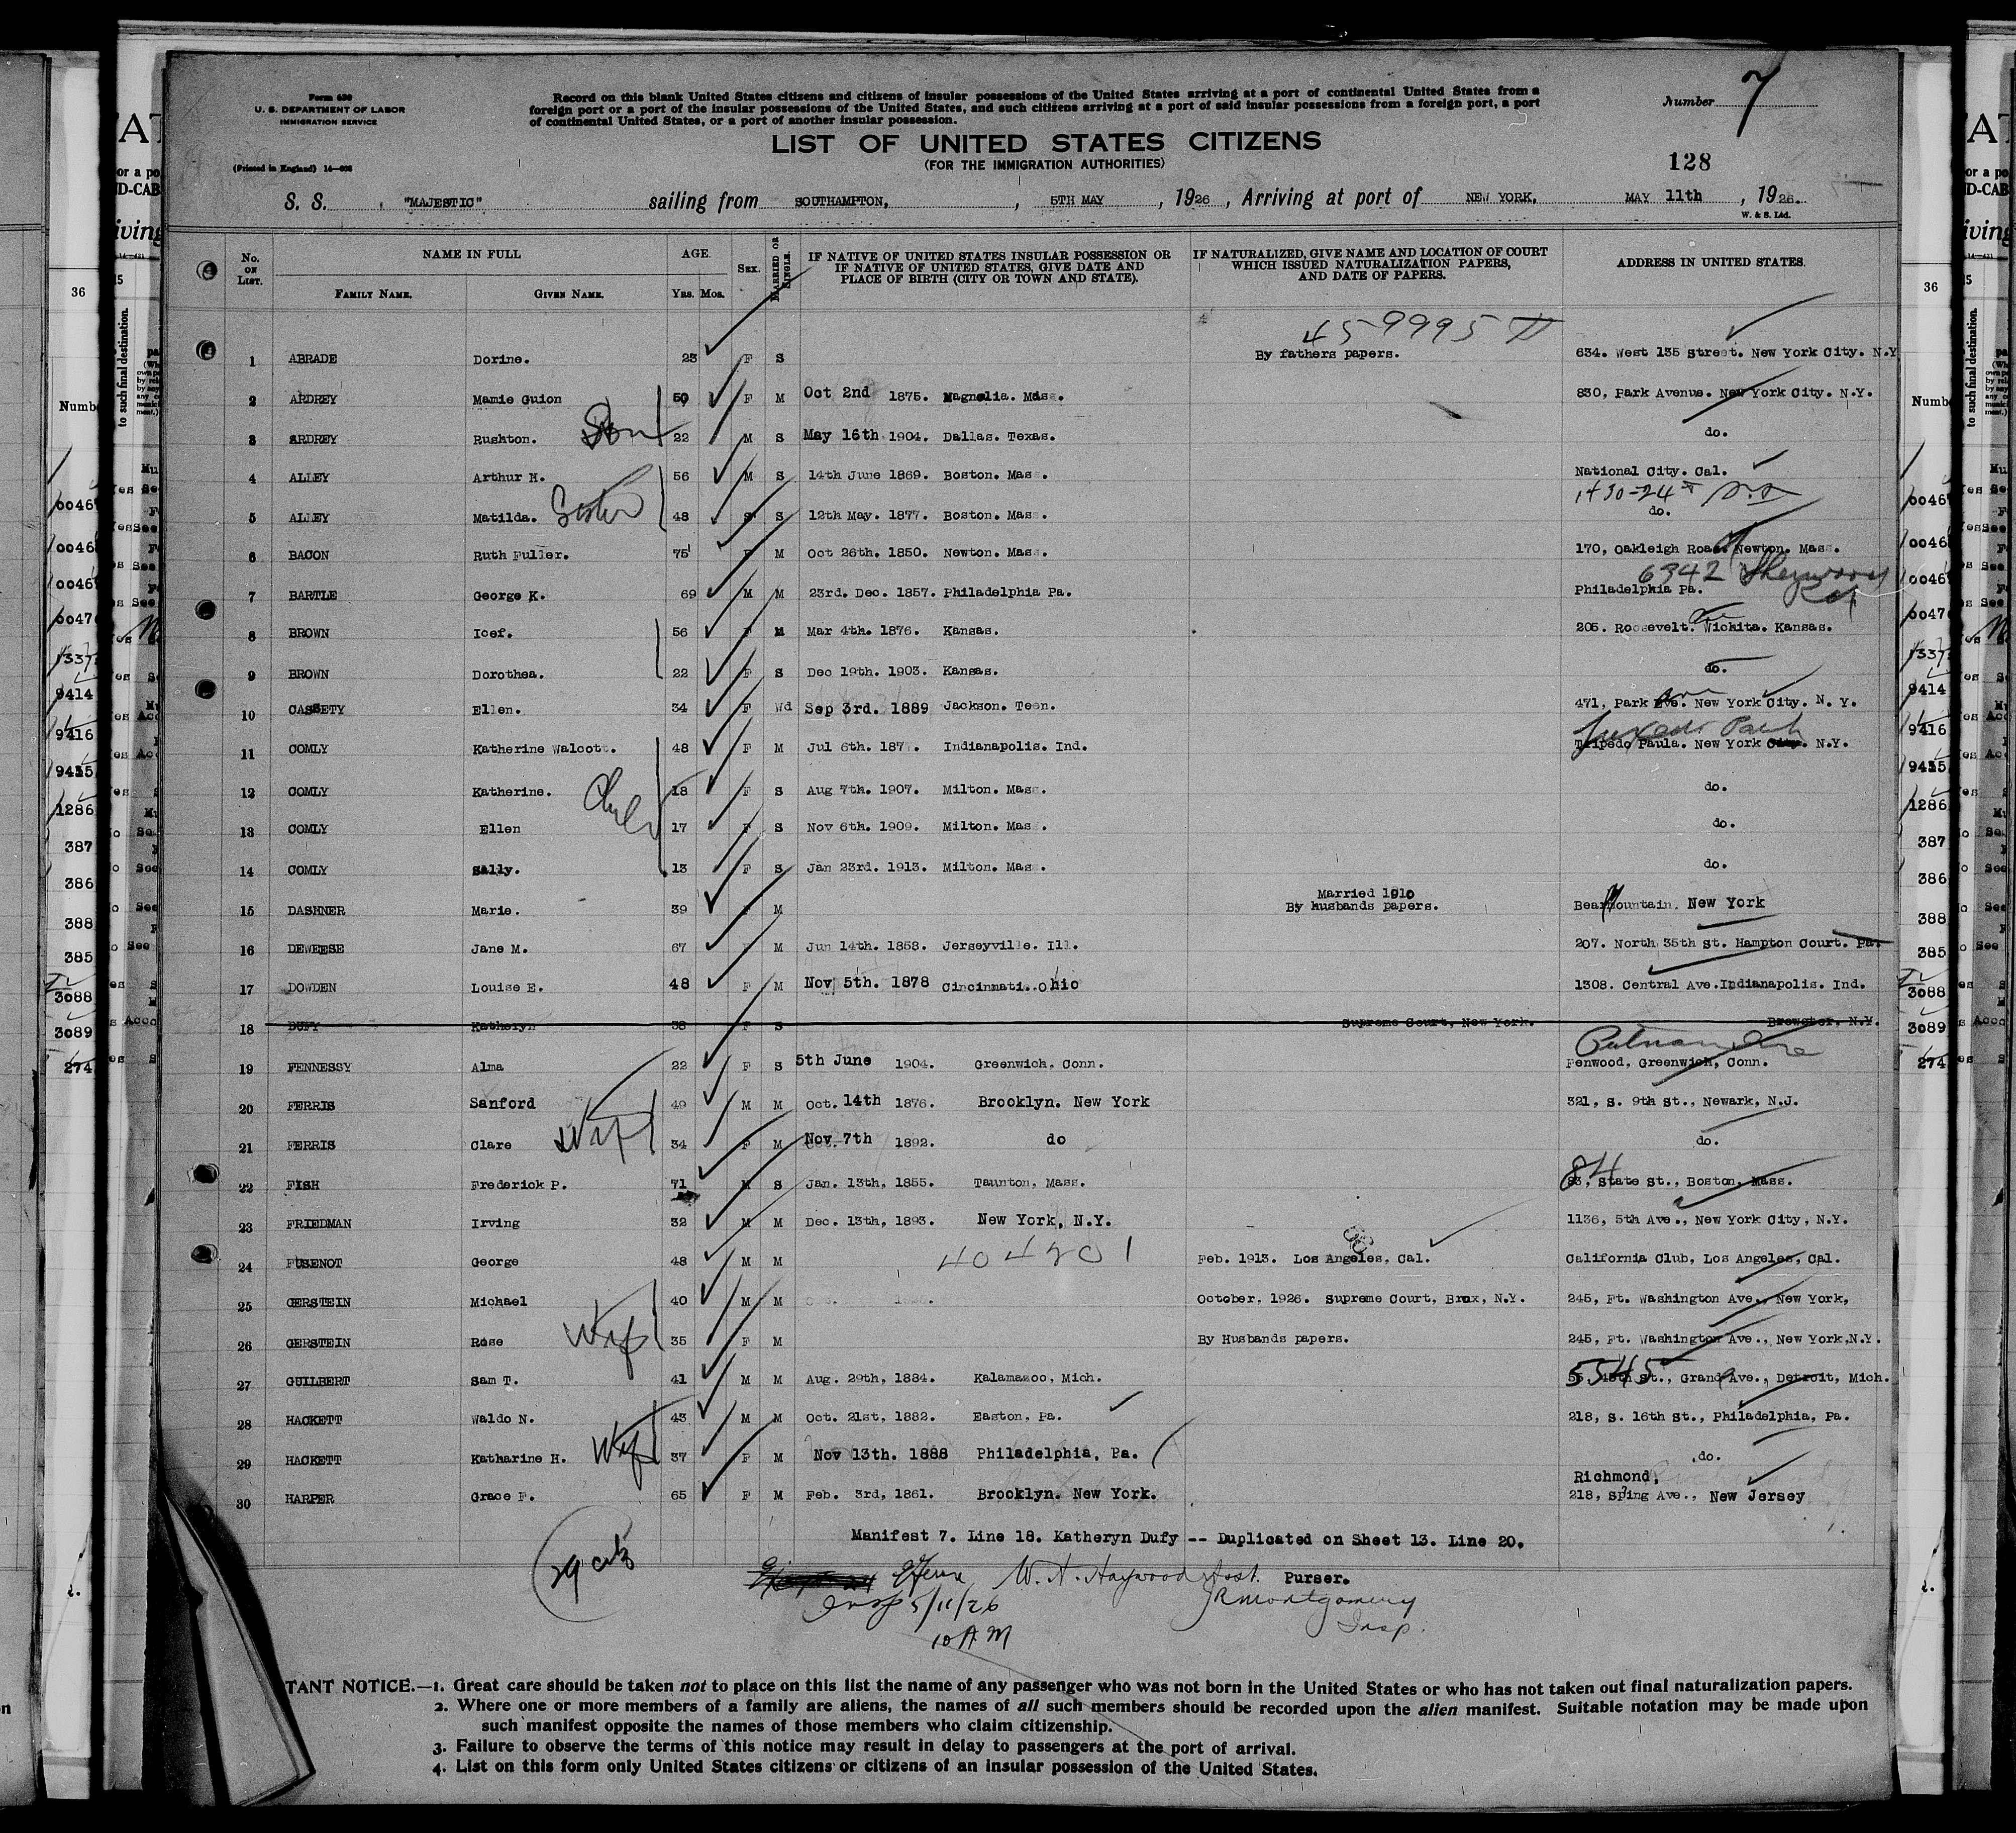 Form 630
U. S. DEPARTMENT OF LABOR
IMMIGRATION SERVICE
(Printed in England) 14—608
Record on this blank United States citizens and citizens of insular possessions of the United States arriving at a port of continental United States from a
foreign port or a port of the insular possessions of the United States, and such citizens arriving at a port of said insular possessions from a foreign port, a port
of continental United States, or a port of another insular possession.
Number 7
LIST OF UNITED STATES CITIZENS
(FOR THE IMMIGRATION AUTHORITIES)
128
S. S. "MAJESTIC" sailing from SOUTHAMPTON, , 5TH MAY , 1926 , Arriving at port of NEW YORK, MAY 11th , 1926.
W. & S. Ltd.
No. ON LIST. NAME IN FULL AGE. SEX. MARRIED OR SINGLE. IF NATIVE OF UNITED STATES INSULAR POSSESSION OR IF NATIVE OF UNITED STATES, GIVE DATE AND PLACE OF BIRTH (CITY OR TOWN AND STATE). IF NATURALIZED, GIVE NAME AND LOCATION OF COURT WHICH ISSUED NATURALIZATION PAPERS, AND DATE OF PAPERS. ADDRESS IN UNITED STATES.
FAMILY NAME. GIVEN NAME. Yrs. Mos.
459995
1 ABRADE Dorine. 23 F S By fathers papers. 634. West 135 Street. New York City. N.Y
2 ARDREY Mamie Guion 50 F M Oct 2nd 1875. Magnolia. Mass. 830, Park Avenue. New York City. N.Y.
3 ARDREY Rushton. Son 22 M S May 16th 1904. Dallas. Texas. do.
4 ALLEY Arthur H. 56 M S 14th June 1869. Boston. Mass. National City. Cal.
1430-24
5 ALLEY Matilda. Sister 48 S 12th May. 1877. Boston. Mass. do.
6 BACON Ruth Fuller. 75 F M Oct 26th. 1850. Newton. Mass. 170, Oakleigh Road. Newton. Mass.
6342 Sherwood Rd
7 BARTLE George K. 69 M M 23rd. Dec. 1857. Philadelphia Pa. Philadelphia Pa.
8 BROWN Icef. 56 F M Mar 4th. 1876. Kansas. 205. Roosevelt. Wichita. Kansas.
9 BROWN Dorothea. 22 F S Dec 19th. 1903. Kansas. do.
10 CASSETY Ellen. 34 F Wd Sep 3rd. 1889 Jackson. Teen. 471, Park Ave. New York City. N. Y.
Tuxedo Park
11 COMLY Katherine Walcott. 48 F M Jul 6th. 1877. Indianapolis. Ind. Tripedo Paula. New York City. N.Y.
12 COMLY Katherine. 18 F S Aug 7th. 1907. Milton. Mass. do.
13 COMLY Ellen 17 F S Nov 6th. 1909. Milton. Mass. do.
14 COMLY Sally. 13 F S Jan 23rd. 1913. Milton. Mass. do.
Married 1910
15 DASHNER Marie. 39 F M By husbands papers. Bear Mountain. New York
16 DEWEESE Jane M. 67 F M Jun 14th. 1858. Jerseyville. Ill. 207. North 35th St. Hampton Court. Pa.
17 DOWDEN Louise E. 48 F M Nov 5th. 1878 Cincinnati. Ohio 1308. Central Ave. Indianapolis. Ind.
18 DUFY Katheryn 38 F S Supreme Court, New York. Brewster, N.Y.
Putnam Ave
19 FENNESSY Alma 22 F S 5th June 1904. Greenwich, Conn. Fenwood, Greenwich, Conn.
20 FERRIS Sanford 49 M M Oct. 14th 1876. Brooklyn. New York 321, S. 9th St., Newark, N.J.
21 FERRIS Clare Wife 34 F M Nov. 7th 1892. do do.
22 FISH Frederick P. 71 M S Jan. 13th, 1855. Taunton, Mass. 84, State St., Boston, Mass.
23 FRIEDMAN Irving 32 M M Dec. 13th, 1893. New York, N.Y. 1136, 5th Ave., New York City, N.Y.
24 FUSENOT George 48 M M 404201 Feb. 1913. Los Angeles, Cal. California Club, Los Angeles, Cal.
25 GERSTEIN Michael 40 M M October, 1926. Supreme Court, Brnx, N.Y. 245, Ft. Washington Ave., New York,
26 GERSTEIN Rose Wife 35 F M By Husbands papers. 245, Ft. Washington Ave., New York, N.Y.
27 GUILBERT Sam T. 41 M M Aug. 29th, 1884. Kalamazoo, Mich. 5545 St., Grand Ave., Detroit, Mich.
28 HACKETT Waldo N. 43 M M Oct. 21st, 1882. Easton, Pa. 218, S. 16th St., Philadelphia, Pa.
29 HACKETT Katharine H. Wife 37 F M Nov 13th. 1888 Philadelphia, Pa. do.
Richmond,
30 HARPER Grace F. 65 F M Feb. 3rd, 1861. Brooklyn. New York. 218, Sping Ave., New Jersey
Manifest 7. Line 18. Katheryn Dufy -- Duplicated on Sheet 13. Line 20.
29 citz
W. A. Haywood Asst. Purser.
Insp 5/11/26 JRMontgomery
10 A.M Insp.
TANT NOTICE.—1. Great care should be taken not to place on this list the name of any passenger who was not born in the United States or who has not taken out final naturalization papers.
2. Where one or more members of a family are aliens, the names of all such members should be recorded upon the alien manifest. Suitable notation may be made upon
such manifest opposite the names of those members who claim citizenship.
3. Failure to observe the terms of this notice may result in delay to passengers at the port of arrival.
4. List on this form only United States citizens or citizens of an insular possession of the United States.